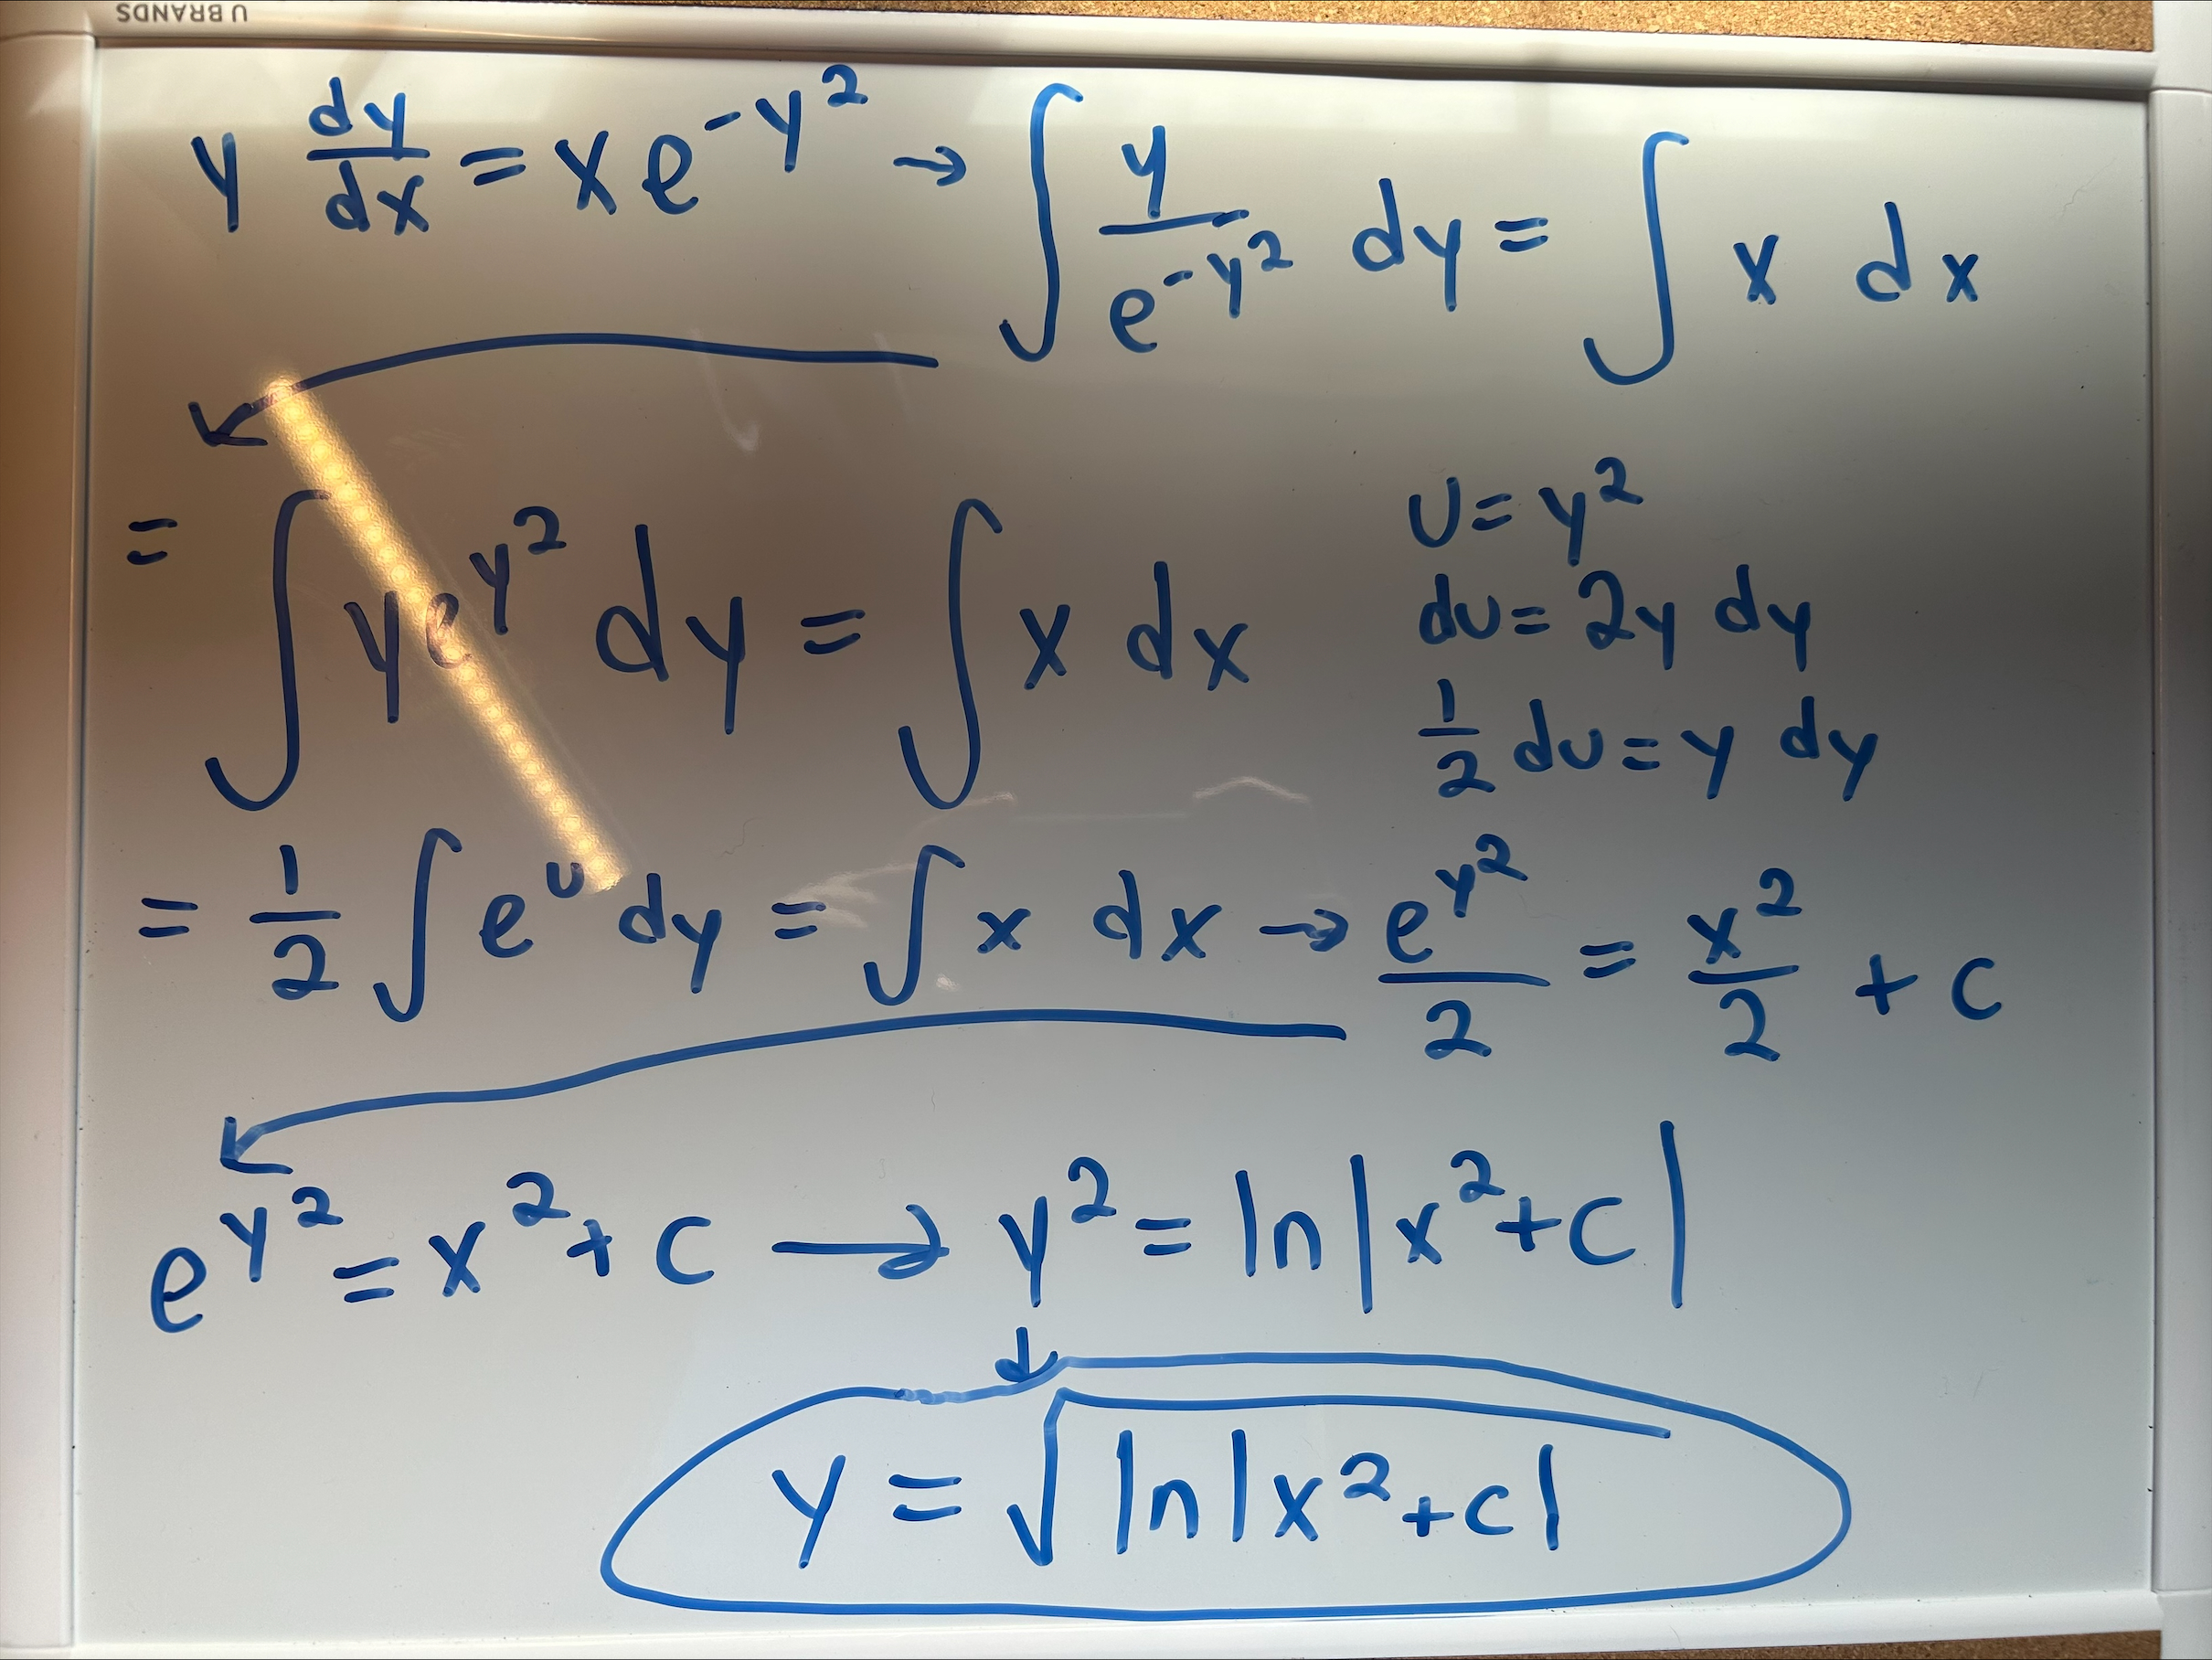 U BRANDS
y dy/dx = xe^-y^2 → ∫ y/e^-y^2 dy = ∫ x dx
= ∫ye^y^2 dy = ∫ x dx
U = y^2
du = 2y dy
1/2 du = y dy
= 1/2 ∫ e^u dy = ∫ x dx → e^y^2/2 = x^2/2 + c
e^y^2 = x^2 + c → y^2 = ln|x^2+c|
↓
y = √ln|x^2+c|